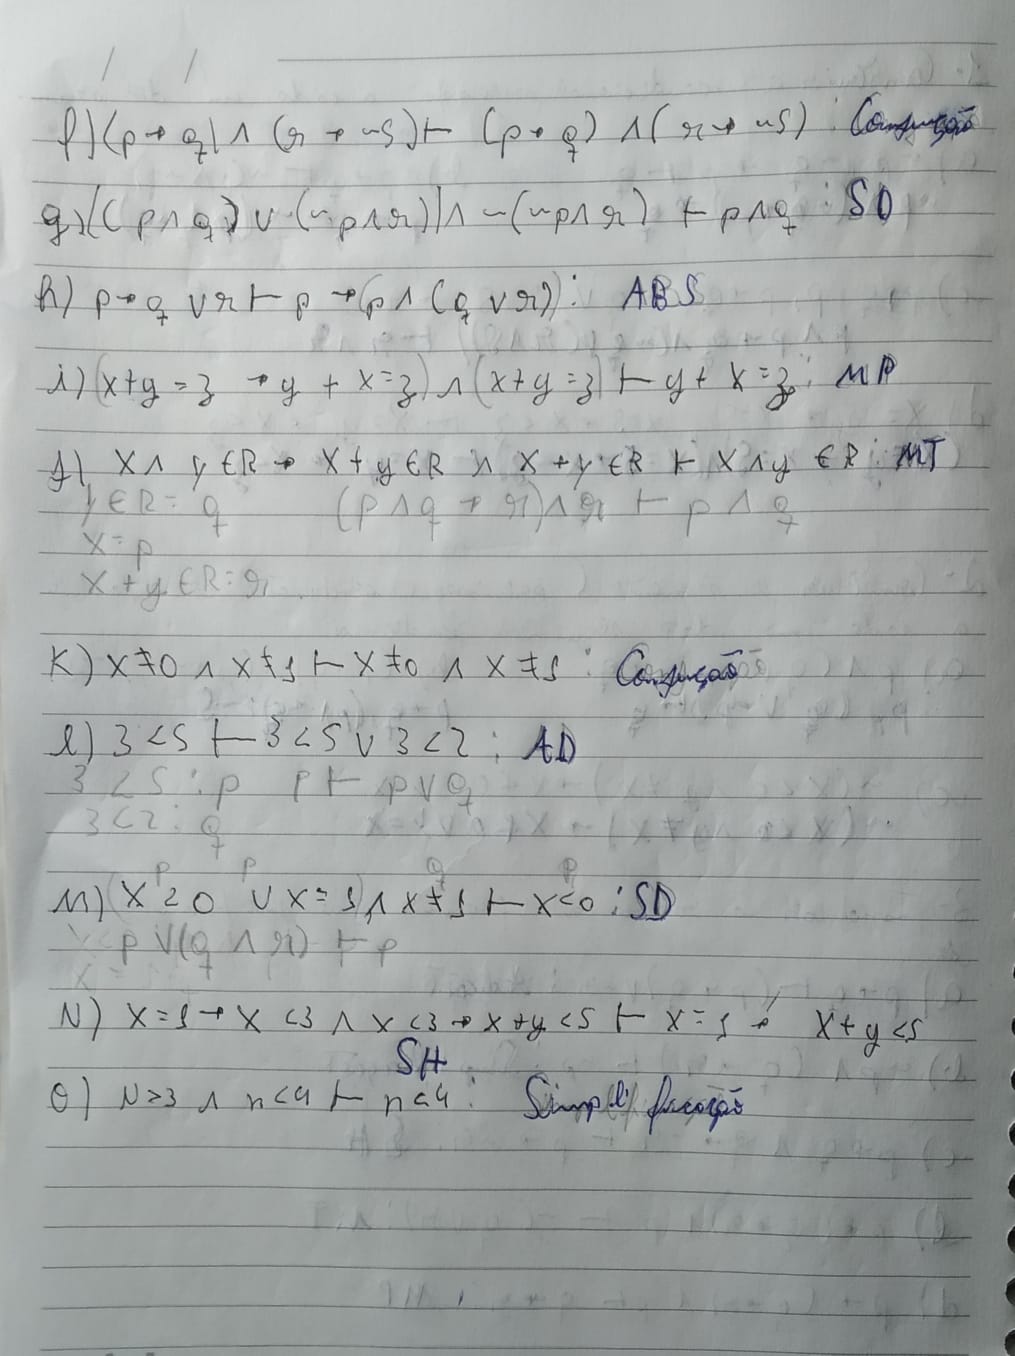 / /
f) (p → q) ∧ (r → ~s) ⊢ (p → q) ∧ (r → ~s) : Conjunção
g) [(p ∧ q) ∨ (~p ∧ r)] ∧ ~(~p ∧ r) ⊢ p ∧ q : SD
h) p → q ∨ r ⊢ p → (p ∧ (q ∨ r)) : ABS
i) (x+y = z → y + x = z) ∧ (x+y = z) ⊢ y + x = z : MP
j) x ∧ y ∈ R → x + y ∈ R ∧ x + y ∈ R ⊢ x ∧ y ∈ R : MT
y ∈ R = q (p ∧ q → r) ∧ r ⊢ p ∧ q
x = p
x + y ∈ R = r
K) x ≠ 0 ∧ x ≠ 1 ⊢ x ≠ 0 ∧ x ≠ 1 : Conjunção
l) 3 < 5 ⊢ 3 < 5 ∨ 3 < 2 : AD
3 < 5 : p p ⊢ p ∨ q
3 < 2 : q
p p q p
m) (x < 0 ∨ x = 1) ∧ x ≠ 1 ⊢ x < 0 : SD
p ∨ (q ∧ r) ⊢ p
N) x = 1 → x < 3 ∧ x < 3 → x + y < 5 ⊢ x = 1 → x + y < 5
SH
O) N > 3 ∧ n < 4 ⊢ n < 4 : Simplificação